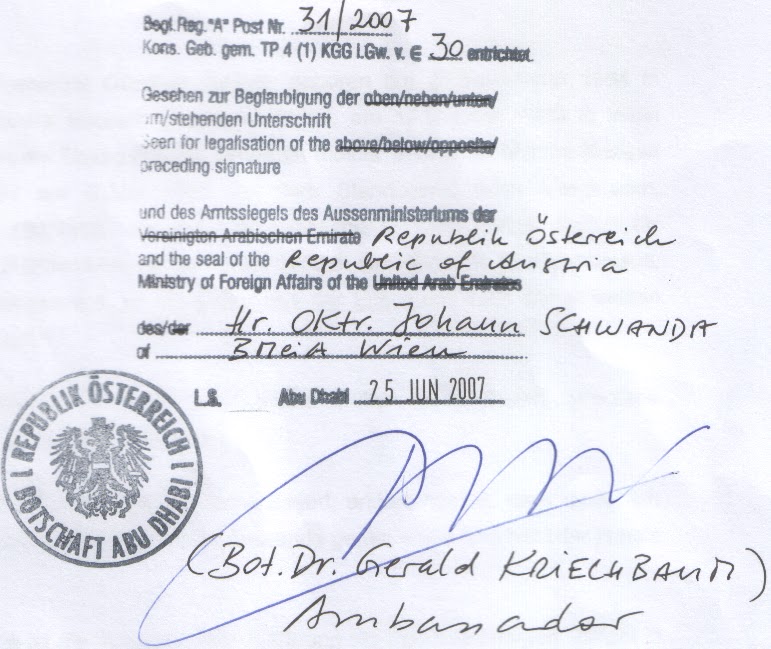 Begl.Reg."A" Post Nr. 31/2007
Kons. Geb. gem. TP 4 (1) KGG I.Gw. v. € 30 entrichtet.
Gesehen zur Beglaubigung der oben/neben/unten/
um/stehenden Unterschrift
Seen for legalisation of the above/below/opposite/
preceding signature
und des Amtssiegels des Aussenministeriums der
Vereinigten Arabischen Emirate Republik Österreich
and the seal of the Republic of Austria
Ministry of Foreign Affairs of the United Arab Emirates
des/der Hr. OKtr. Johann SCHWANDA
of BMeiA Wien
L.S. Abu Dhabi 25 JUN 2007
REPUBLIK ÖSTERREICH
BOTSCHAFT ABU DHABI
(Bot. Dr. Gerald KRIECHBAUM)
Ambassador